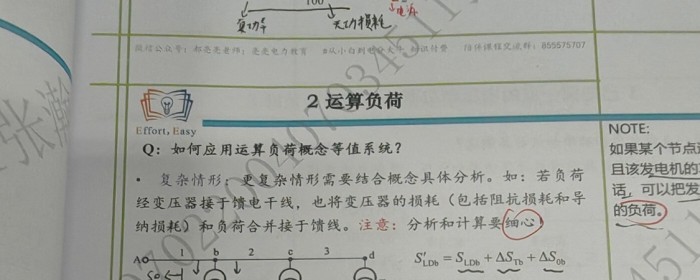 100
复功率
无功损耗
电源
微信公众号：郝亮亮老师；亮亮电力教育
陪伴课程交流群：855575707
2 运算负荷
Effort, Easy
Q：如何应用运算负荷概念等值系统？
NOTE:
如果某个节点
且该发电机的
话，可以把发
的负荷。
• 复杂情形：更复杂情形需要结合概念具体分析。如：若负荷
经变压器接于馈电干线，也将变压器的损耗（包括阻抗损耗和导
纳损耗）和负荷合并接于馈线。注意：分析和计算要细心！
A b 2 c 3 d
S′LDb = SLDb + ΔSTb + ΔS0b